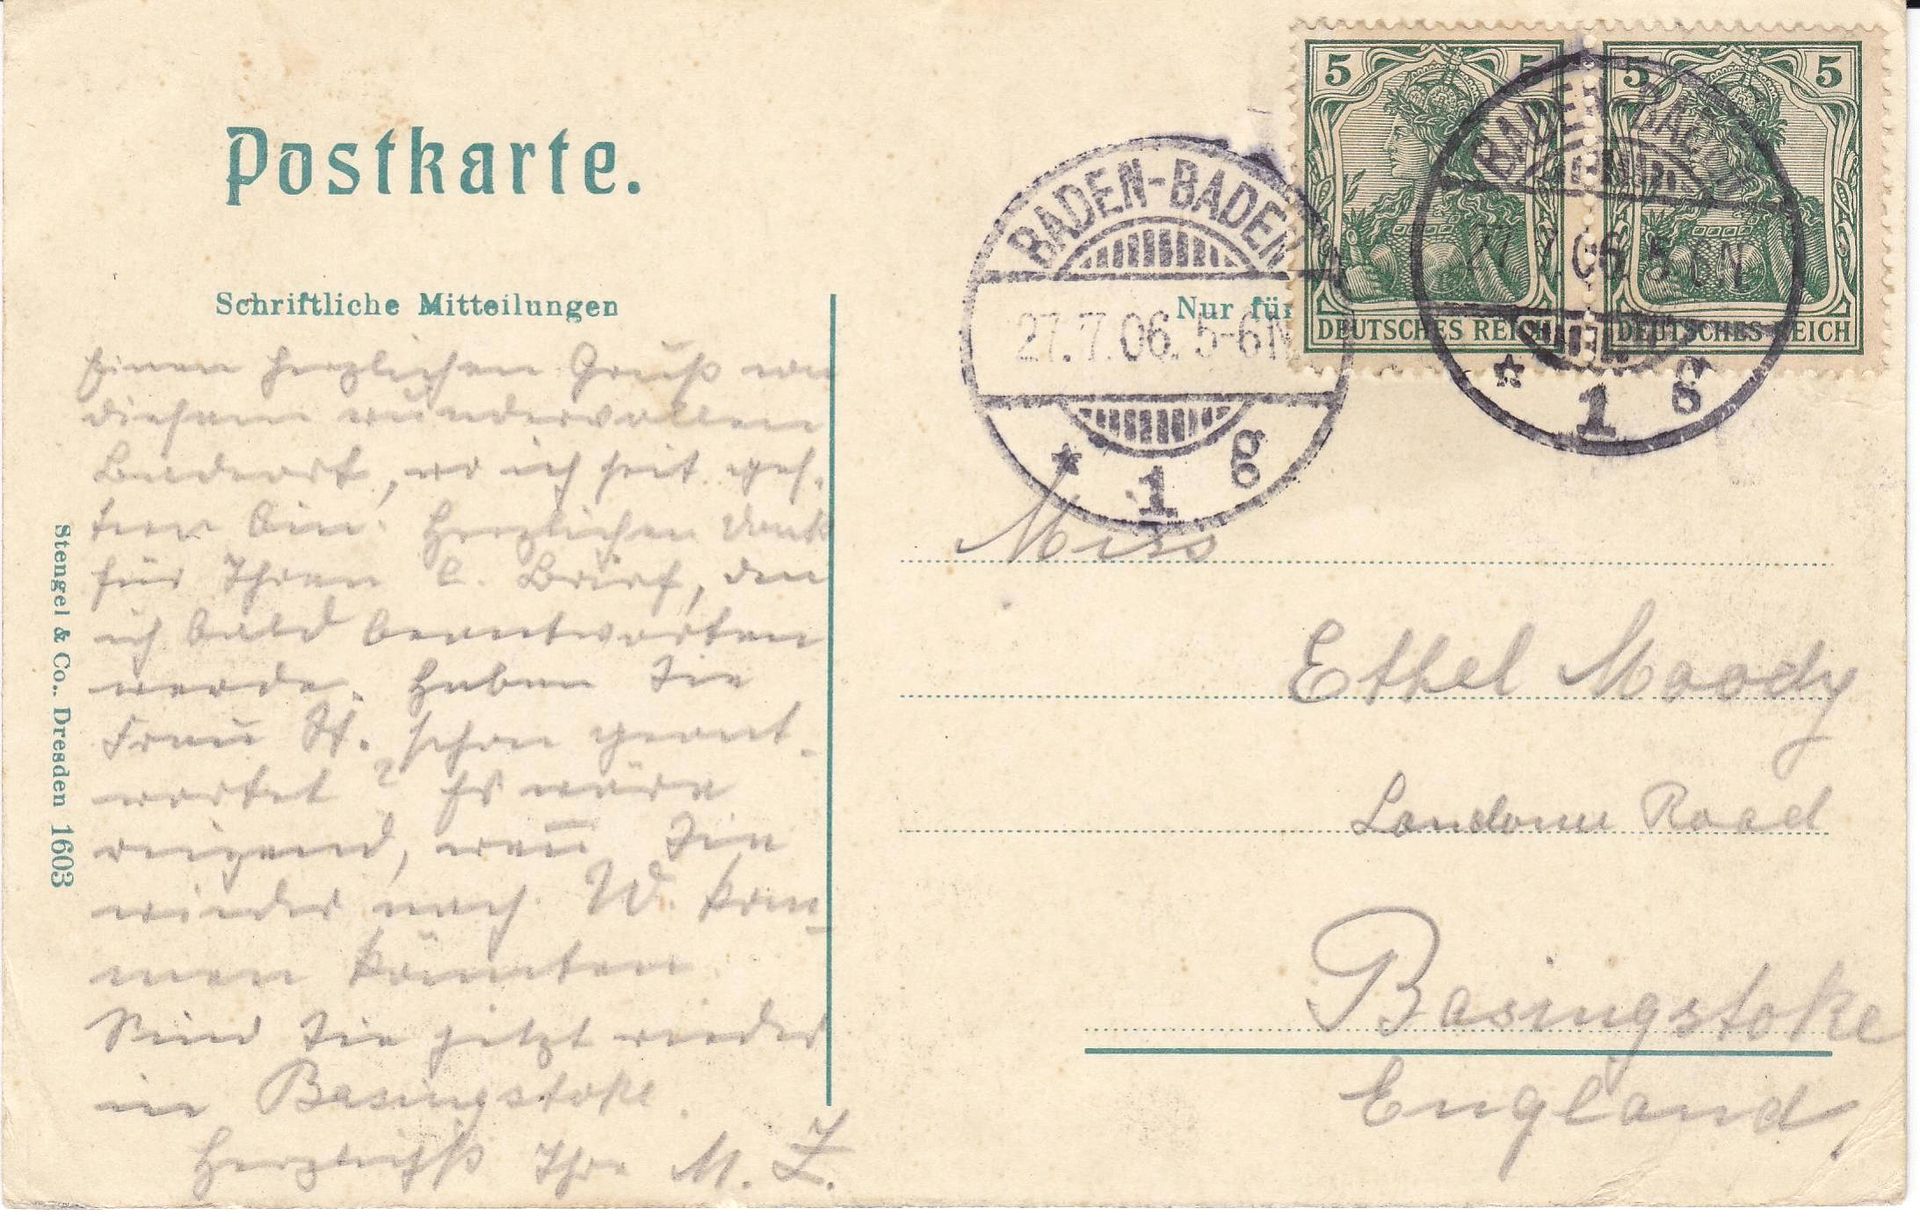 Postkarte.
Schriftliche Mitteilungen
Einen herzlichen Gruß von
diesem wundervollen
Badeort, wo ich seit ges.
tern bin. Herzlichen Dank
für Ihren l. Brief, den
ich bald beantworten
werde. Haben Sie
Frau St. schon geant-
wortet? Es wäre
reizend, wen̄ Sie
wieder nach W. kom-
men könnten.
Sind Sie jetzt wieder
in Basingstoke.
Herzlichst Ihre M. Z.
Stengel & Co., Dresden 1603
Nur für
BADEN-BADEN
27.7.06. 5-6N
* 1 g
5 5
DEUTSCHES REICH
5 5
DEUTSCHES REICH
BADEN-BADEN
27.7.06. 5-6N
* 1 g
Miss
Ethel Moody
Road
Basingstoke
England